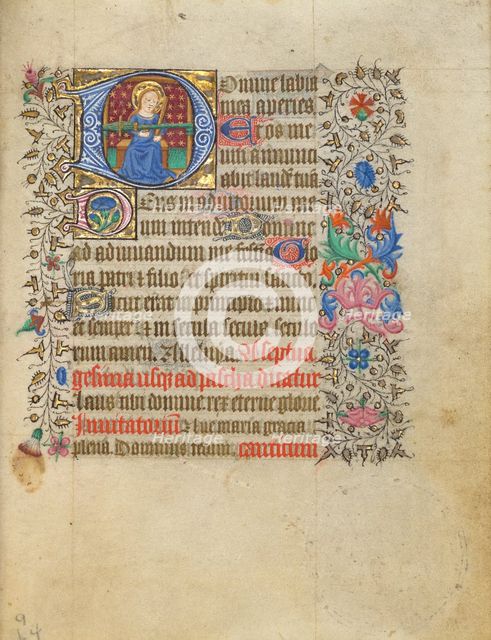 Domine labia
mea aperies
Et os me
um annunci
abit laudem tuā
Deus in adiutorium me
um intende Domine
ad adiuvandum me festina Glo
ria patri & filio & spiritui sancto
Sicut erat in principio & nunc
et semper & in secula seculorū seculo
rum amen. Alleluya A septua
gesima usq; ad pascha dicatur
Laus tibi domine rex eterne glorie
Invitatoriū & Ave maria gracia
plena. Dominus tecum. canticum
heritage
Images
Heritage
Images
9
64